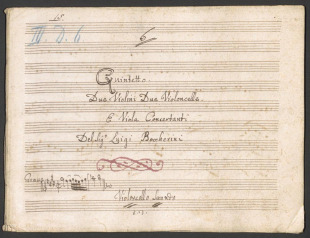 IV. D. 6
6
Quintetto
Due Violini Due Violoncelli
E Viola Concertanti
Del Sig.r Luigi Boccherini
Violoncello Secondo